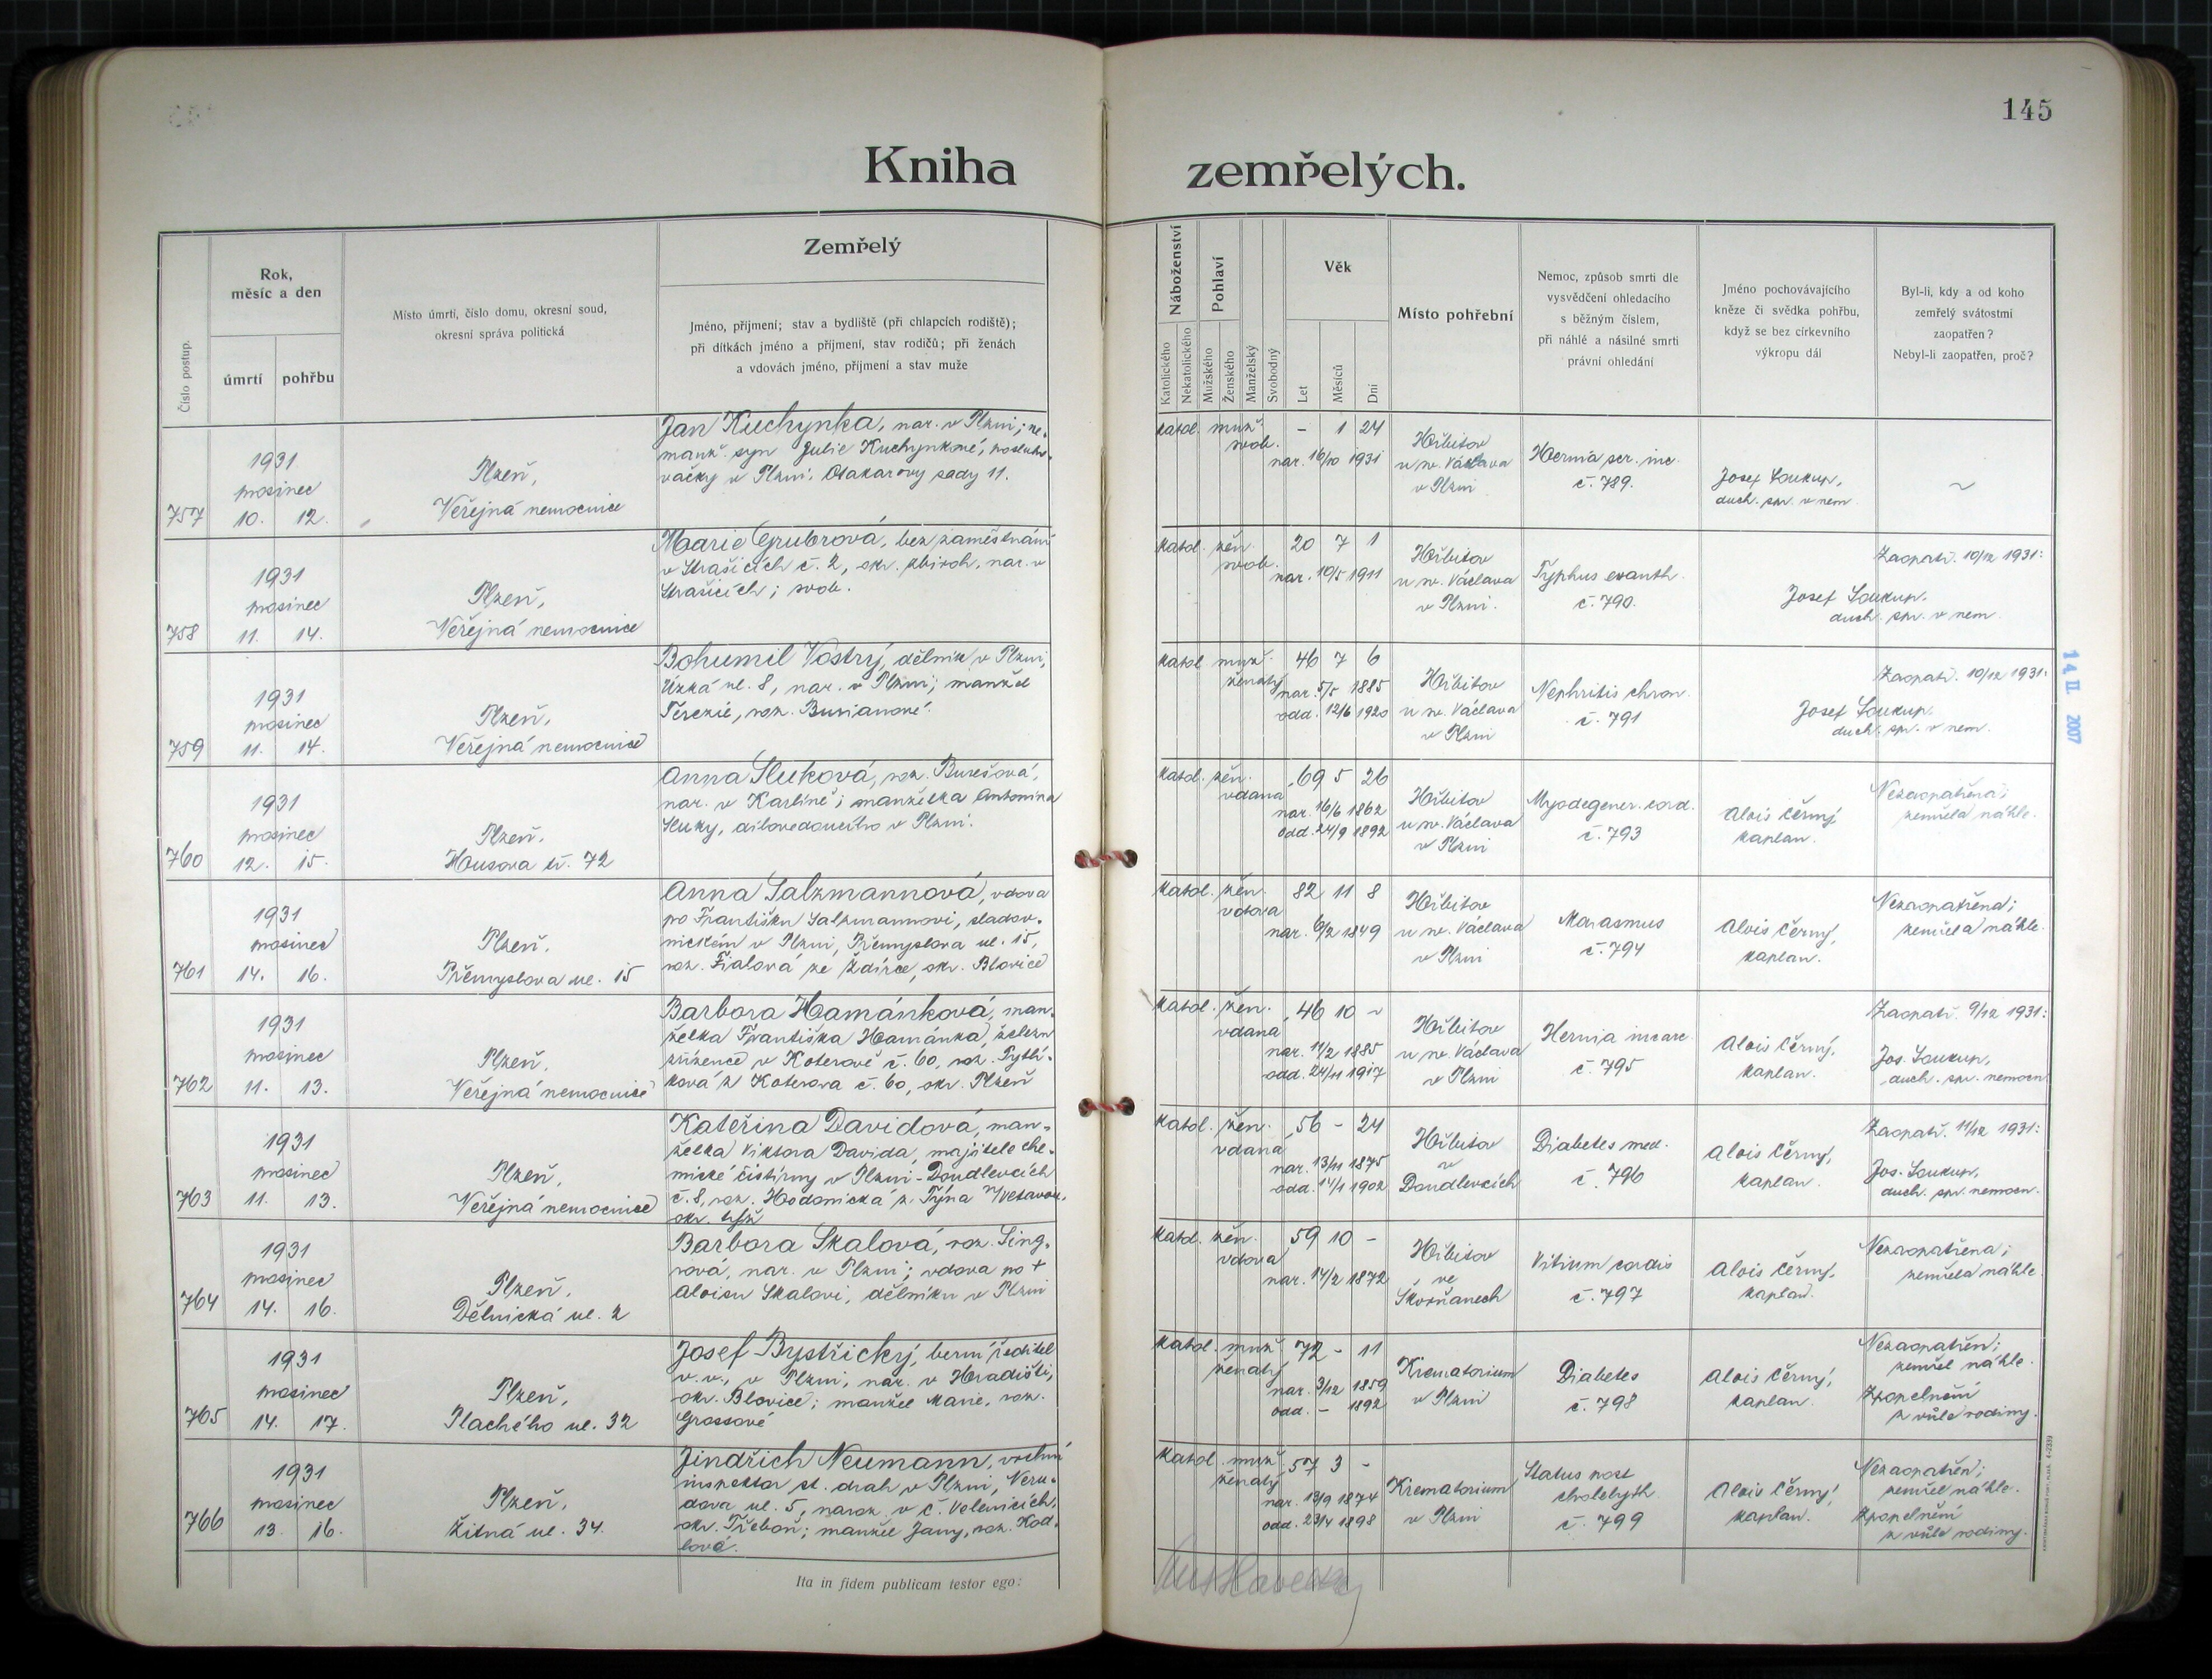 145
Kniha zemřelých.
Číslo postup.
Rok,
měsíc a den
úmrtí
pohřbu
Místo úmrtí, číslo domu, okresní soud,
okresní správa politická
Zemřelý
Jméno, příjmení; stav a bydliště (při chlapcích rodiště);
při dítkách jméno a příjmení, stav rodičů; při ženách
a vdovách jméno, příjmení a stav muže
Náboženství
Katolického
Nekatolického
Pohlaví
Mužského
Ženského
Manželský
Svobodný
Věk
Let
Měsíců
Dní
Místo pohřební
Nemoc, způsob smrti dle
vysvědčení ohledacího
s běžným číslem,
při náhlé a násilné smrti
právní ohledání
Jméno pochovávajícího
kněze či svědka pohřbu,
když se bez církevního
výkropu dál
Byl-li, kdy a od koho
zemřelý svátostmi
zaopatřen?
Nebyl-li zaopatřen, proč?
757
1931
prosinec
10. 12.
Plzeň,
Veřejná nemocnice
Jan Kuchynka, nar. v Plzni; ne-
manž. syn Julie Kuchynkové, posluho-
vačky v Plzni, Otakarovy sady 11.
katol. muž. svob.
- 1 24
nar. 16/10 1931
Hřbitov
u sv. Václava
v Plzni
Hernia scr. inc.
č. 789.
Josef Soukup,
duch. spr. v nem.
~
758
1931
prosinec
11. 14.
Plzeň,
Veřejná nemocnice
Marie Grubrová, bez zaměstnání
v Strašicích č. 2, okr. Zbiroh, nar. v
Strašicích; svob.
katol. žen. svob.
20 7 1
nar. 10/5 1911
Hřbitov
u sv. Václava
v Plzni.
Typhus exanth.
č. 790.
Zaopatř. 10/12 1931:
Josef Soukup,
duch. spr. v nem.
759
1931
prosinec
11. 14.
Plzeň,
Veřejná nemocnice
Bohumil Vostrý, dělník v Plzni,
Úzká ul. 8, nar. v Plzni; manžel
Terezie, roz. Burianové.
katol. muž. ženatý
46 7 6
nar. 5/5 1885
odd. 12/6 1920
Hřbitov
u sv. Václava
v Plzni
Nephritis chron.
č. 791
Zaopatř. 10/12 1931:
Josef Soukup,
duch. spr. v nem.
760
1931
prosinec
12. 15.
Plzeň,
Husova tř. 72
Anna Sluková, roz. Burešová,
nar. v Karlíně; manželka Antonína
Sluky, dílovedoucího v Plzni.
katol. žen. vdaná
69 5 26
nar. 16/6 1862
odd. 24/9 1892
Hřbitov
u sv. Václava
v Plzni
Myodegener. cord.
č. 793
Alois Černý,
kaplan.
Nezaopatřena;
zemřela náhle.
761
1931
prosinec
14. 16.
Plzeň,
Přemyslova ul. 15
Anna Salzmannová, vdova
po Františku Salzmannovi, sladov-
nickém v Plzni, Přemyslova ul. 15,
roz. Fialová ze Ždírce, okr. Blovice
katol. žen. vdova
82 11 8
nar. 6/2 1849
Hřbitov
u sv. Václava
v Plzni
Marasmus
č. 794
Alois Černý,
kaplan.
Nezaopatřena;
zemřela náhle.
762
1931
prosinec
11. 13.
Plzeň,
Veřejná nemocnice
Barbora Hamánková, man-
želka Františka Hamánka, železn.
zřízence v Koterově č. 60, roz. Pytlí-
ková z Koterova č. 60, okr. Plzeň
katol. žen. vdaná
46 10 ~
nar. 11/2 1885
odd. 24/11 1917
Hřbitov
u sv. Václava
v Plzni
Hernia incarc.
č. 795
Alois Černý,
kaplan.
Zaopatř. 9/12 1931:
Jos. Soukup,
duch. spr. nemocn.
763
1931
prosinec
11. 13.
Plzeň,
Veřejná nemocnice
Kateřina Davidová, man-
želka Viktora Davida, majitele che-
mické čistírny v Plzni-Doudlevcích
č. 8, roz. Hodonická z Týna n/Vltavou,
okr. týž
katol. žen. vdaná
56 - 24
nar. 13/11 1875
odd. 14/1 1902
Hřbitov
v
Doudlevcích
Diabetes med.
č. 796
Alois Černý,
kaplan.
Zaopatř. 11/12 1931:
Jos. Soukup,
duch. spr. nemocn.
764
1931
prosinec
14. 16.
Plzeň,
Dělnická ul. 2
Barbora Skalová, roz. Sing-
rová, nar. v Plzni; vdova po +
Aloisu Skalovi, dělníku v Plzni
katol. žen. vdova
59 10 -
nar. 14/2 1872
Hřbitov
ve
Skvrňanech
Vitium cordis
č. 797
Alois Černý,
kaplan.
Nezaopatřena;
zemřela náhle.
765
1931
prosinec
14. 17.
Plzeň,
Plachého ul. 32
Josef Bystřický, berní ředitel
v. v., v Plzni, nar. v Hradišti,
okr. Blovice; manžel Marie, roz.
Grossové
katol. muž. ženatý
72 - 11
nar. 3/12 1859
odd. - 1892
Krematorium
v Plzni
Diabetes
č. 798
Alois Černý,
kaplan.
Nezaopatřen;
zemřel náhle.
Zpopelnění
z vůle rodiny.
766
1931
prosinec
13. 16.
Plzeň,
Žitná ul. 34.
Jindřich Neumann, vrchní
inspektor st. drah v Plzni, Neru-
dova ul. 5, naroz. v Č. Velenicích,
okr. Třeboň; manžel Jany, roz. Kod-
lové.
katol. muž. ženatý
57 3 -
nar. 13/9 1874
odd. 23/4 1898
Krematorium
v Plzni
Status post
cholelyth.
č. 799
Alois Černý,
kaplan.
Nezaopatřen;
zemřel náhle.
Zpopelnění
z vůle rodiny.
Ita in fidem publicam testor ego:
14. II. 2007